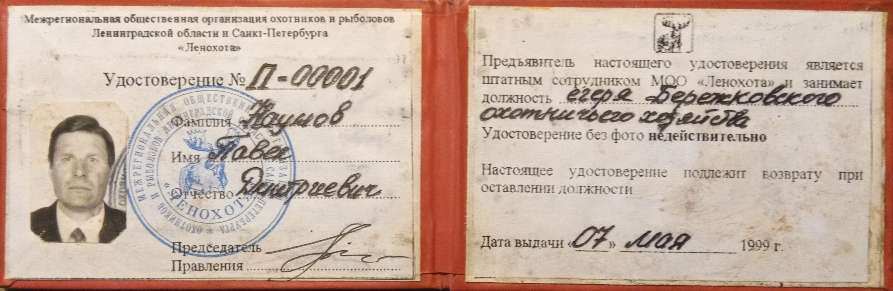 Межрегиональная общественная организация охотников и рыболовов
Ленинградской области и Санкт-Петербурга
«Ленохота»
Удостоверение № П-00001
Фамилия Наумов
Имя Павел
Отчество Дмитриевич
Председатель
Правления
МЕЖРЕГИОНАЛЬНАЯ ОБЩЕСТВЕННАЯ
ОХОТНИКОВ И РЫБОЛОВОВ ЛЕНИНГРАДСКОЙ
"ЛЕНОХОТА"
Предъявитель настоящего удостоверения является
штатным сотрудником МОО «Ленохота» и занимает
должность егеря Бережковского
охотничьего хозяйства
Удостоверение без фото недействительно
Настоящее удостоверение подлежит возврату при
оставлении должности
Дата выдачи «07» мая 1999 г.